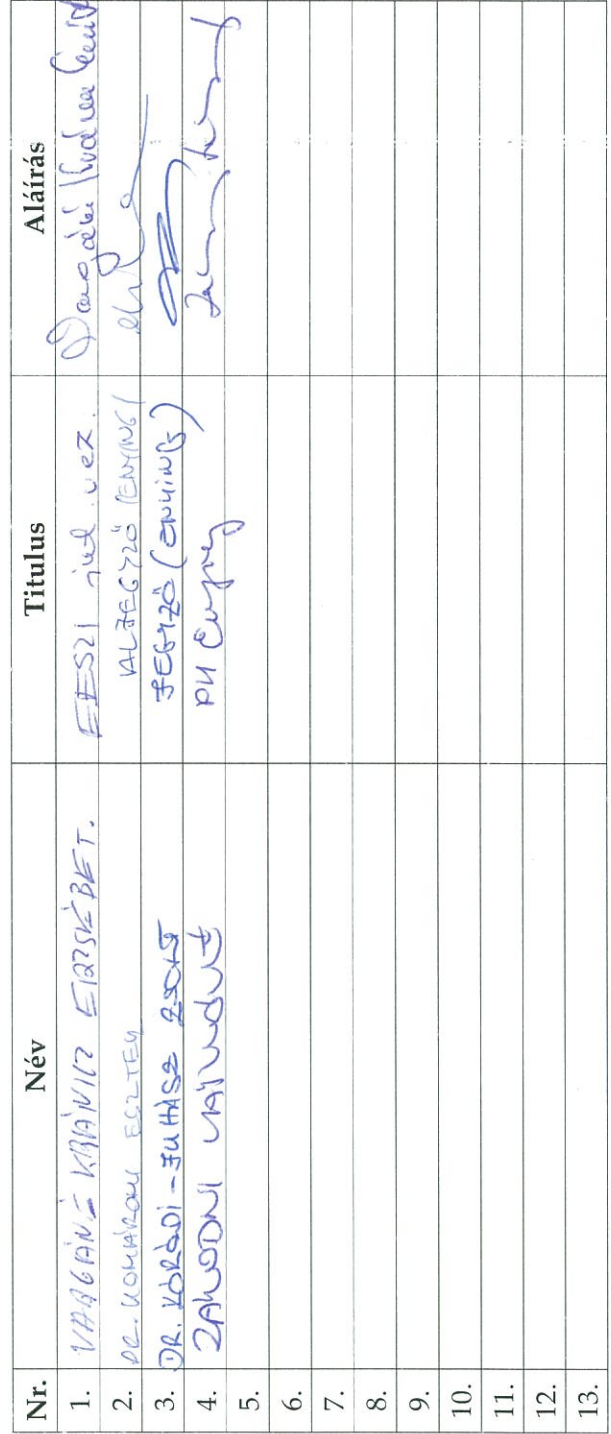 Nr. Név Titulus Aláírás
1. VARGÁNÉ KRÁNICZ ERZSÉBET. EESZI int. vez.
2. DR. KOMÁROMI ESZTER ALJEGYZŐ (ENYING)
3. DR. KÓRÓDI-JUHÁSZ ZSOLT JEGYZŐ (ENYING)
4. ZAVODNI PH Enying
5.
6.
7.
8.
9.
10.
11.
12.
13.